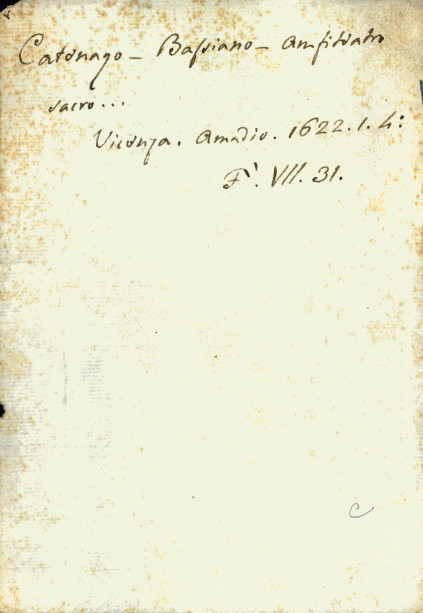 Catenago - Bassiano - Amfiteatro
sacro...
Vicenza. Amadio. 1622. 1. 4:
F. VII. 31.
c